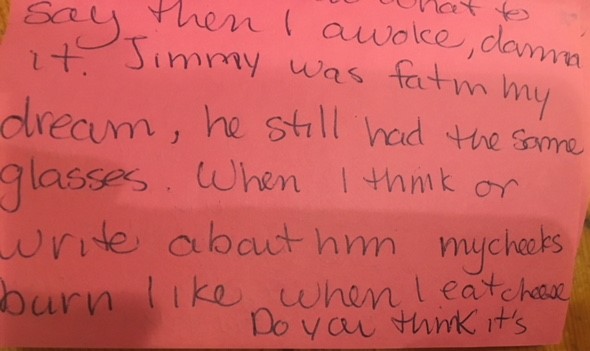 what to
say then I awoke, damn
it. Jimmy was fat in my
dream, he still had the same
glasses. When I think or
write about him my cheeks
burn like when I eat cheese
Do you think it's